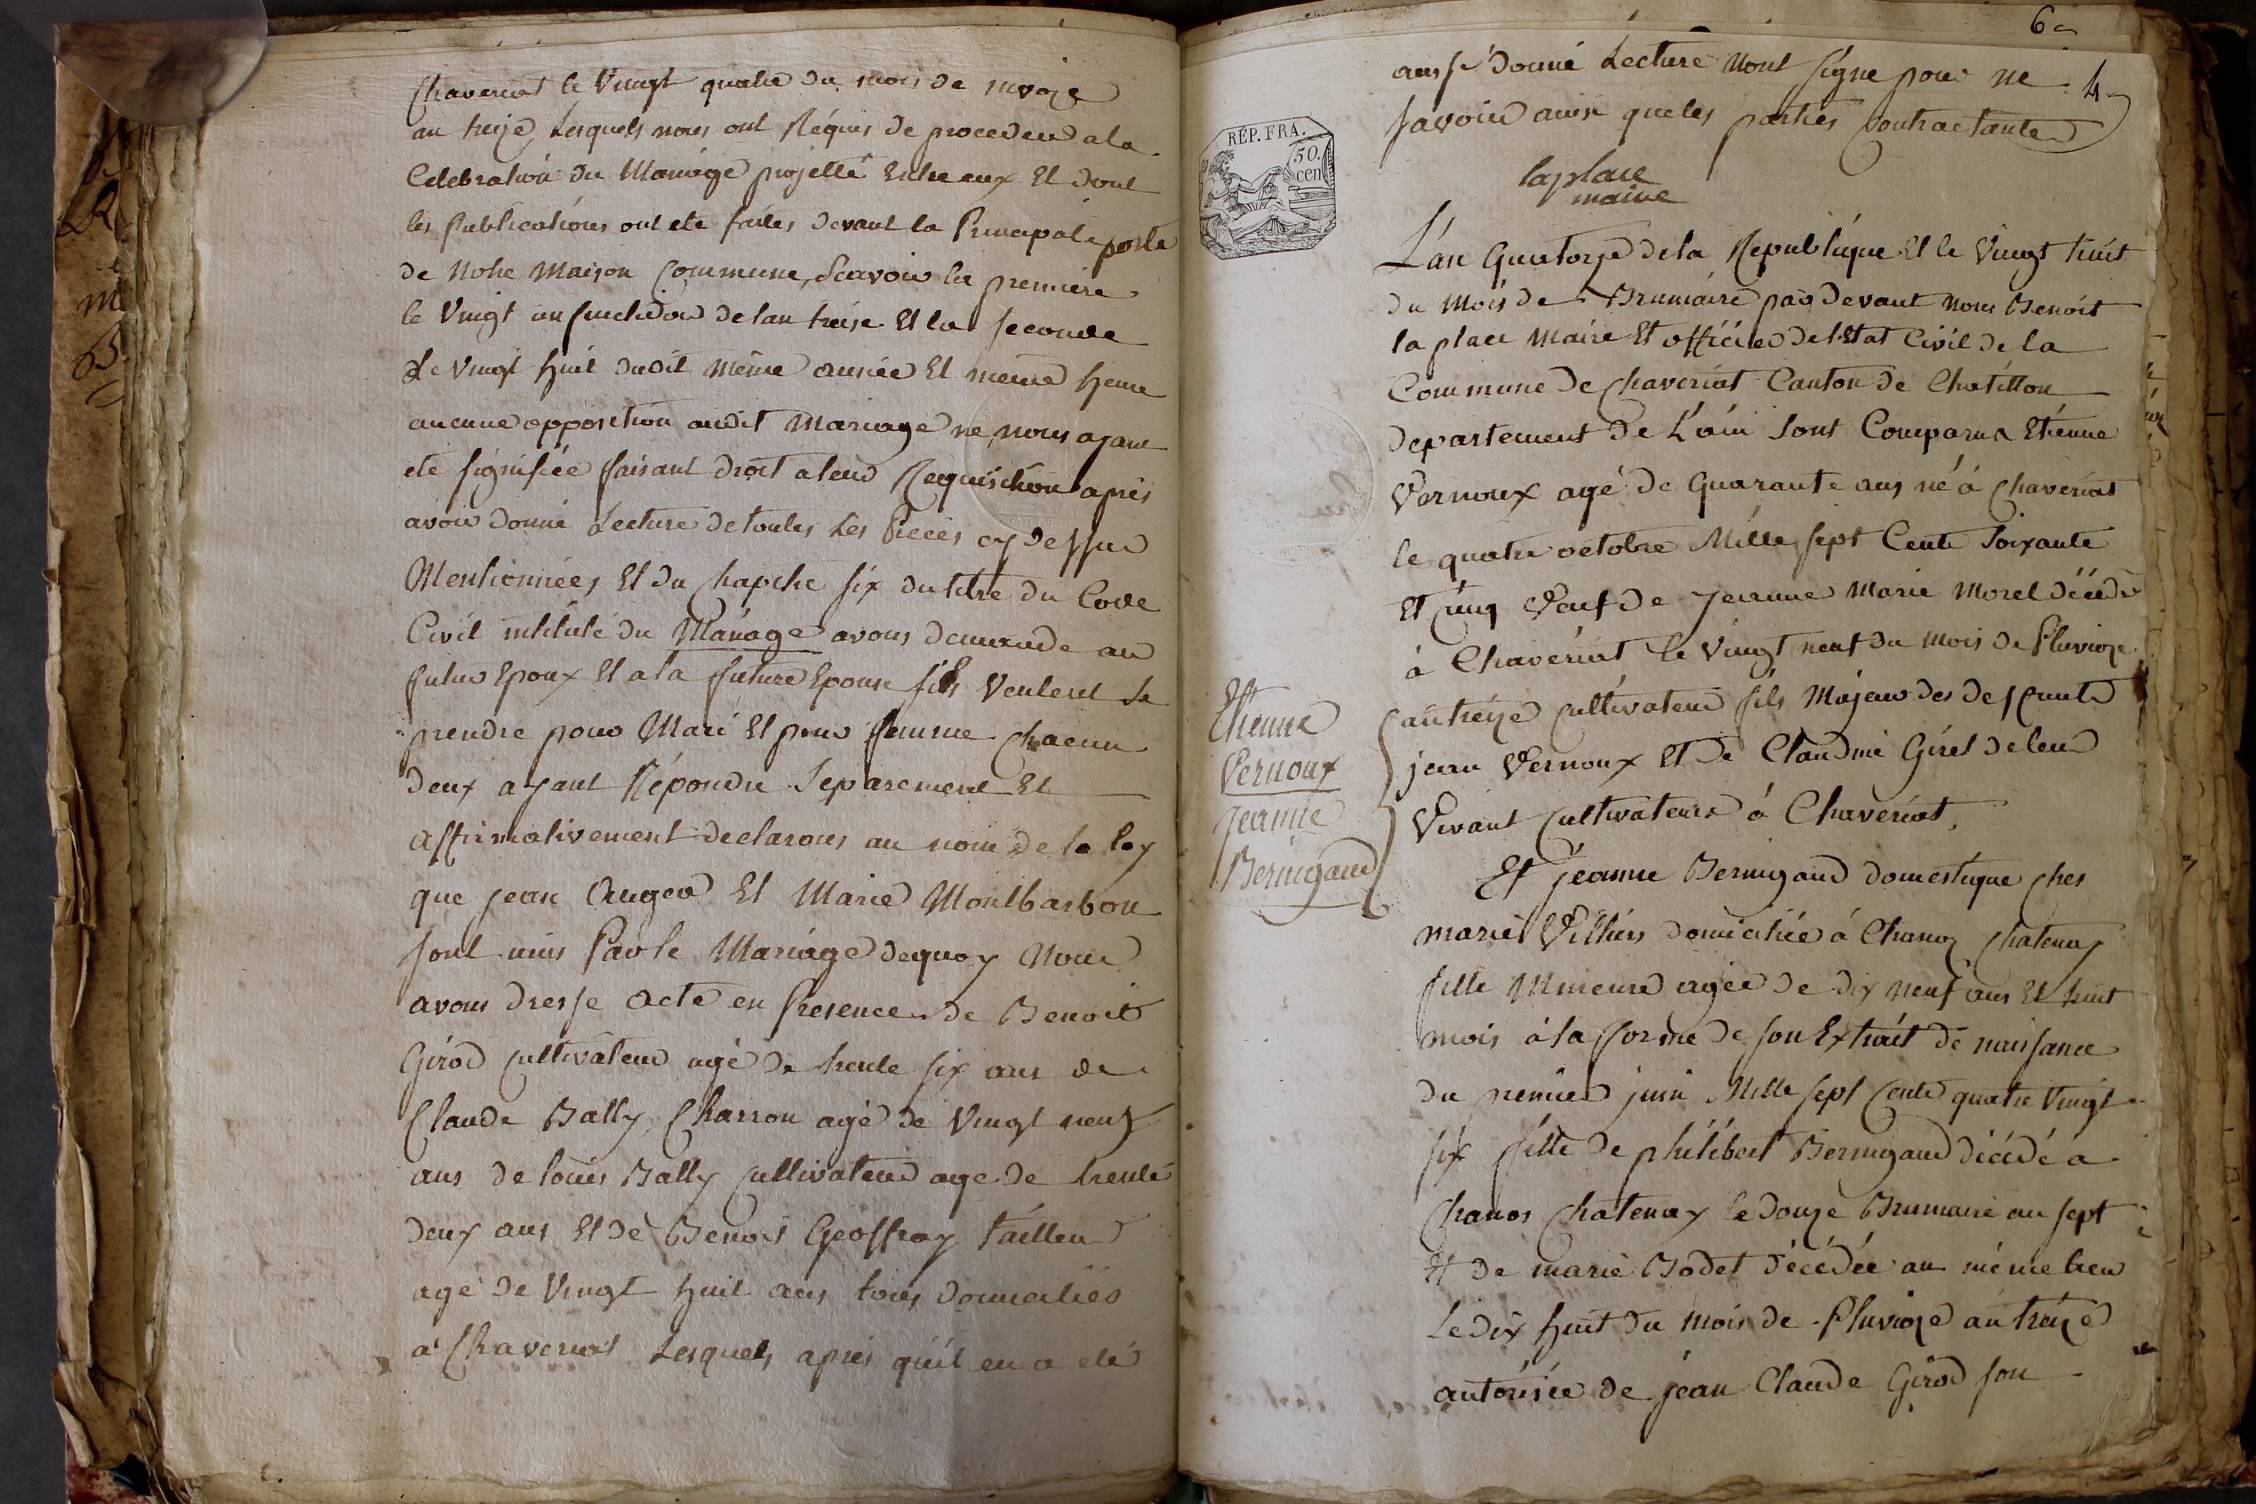 Chaveriat le Vingt quatre du mois de nivoze
an treize Lesquels nous ont Réquis de proceder a la
Celebration du Mariage projetté Entre eux Et dont
les Publications ont ete faites devant la Principale porte
de Notre Maison Commune, Scavoir la premiere
le Vingt un fructidor de lan treise Et la seconde
Le Vingt huit dudit même année Et meme heure
aucune opposition audit Mariage ne nous ayant
ete signifiée faisant droit a leur Requisition après
avoir donné Lecture de toutes Les Pieces cy dessus
Mentionnées Et du Chapitre six du titre du Code
Civil intitulé du Mariage avons demandé au
futur Epoux Et a la future Epouse sils Veulent Se
prendre pour Mari Et pour femme chacun
deux ayant Répondu Separement Et
affirmativement declarons au nom de la loy
que jean Auger Et Marie Montbarbon
sont unis Par le Mariage dequoy Nous
avons dresse acte en Presence de Benoit
Girod cultivateur agé de trente six ans de
Claude Bally Charron agé de Vingt neuf
ans de louis Bally cultivateur age de trente
deux ans Et de Benoit Geoffray tailleur
agé de Vingt huit ans tous domiciliés
a Chaveriat Lesquels après quil en a eté
6
4
aussi donné Lecture Nont signe pour ne
savoir ainsi que les parties Contractantes
laplace
maire
RÉP. FRA.
50.
cen
L'an Quatorze de la Republique Et le Vingt huit
du Mois de Brumaire par devant nous Benoit
la place Maire Et officier de l'Etat Civil de la
Commune de Chaveriat Canton de Chatillon
departement de L'ain Sont Comparus Etienne
Vernoux agé de Quarante ans né à Chaveriat
le quatre octobre Mille sept Cents Soixante
Et cinq Veuf de Jeanne Marie Morel décédé
à Chaveriat le Vingt neuf du Mois de Pluvioze
an treize cultivateur fils Majeur des defunts
jean Vernoux Et de Claudine Giret de leur
Vivant cultivateurs à Chaveriat.
Etienne
Vernoux
Jeanne
Bernigaud
Et jeanne Bernigaud domestique ches
marie Villiers domiciliée à Chanoz Chatenay
fille Mineure agée de dix neuf ans Et huit
mois à la forme de son Extrait de naissance
du premier juin Mille sept Cents quatre Vingt
six fille de philibert Bernigaud décédé a
Chanos Chatenay le douze Brumaire an sept
Et de marie Bodet décédée au même lieu
Le dix huit du mois de Pluvioze an treize
autorisée de jean Claude Girod son